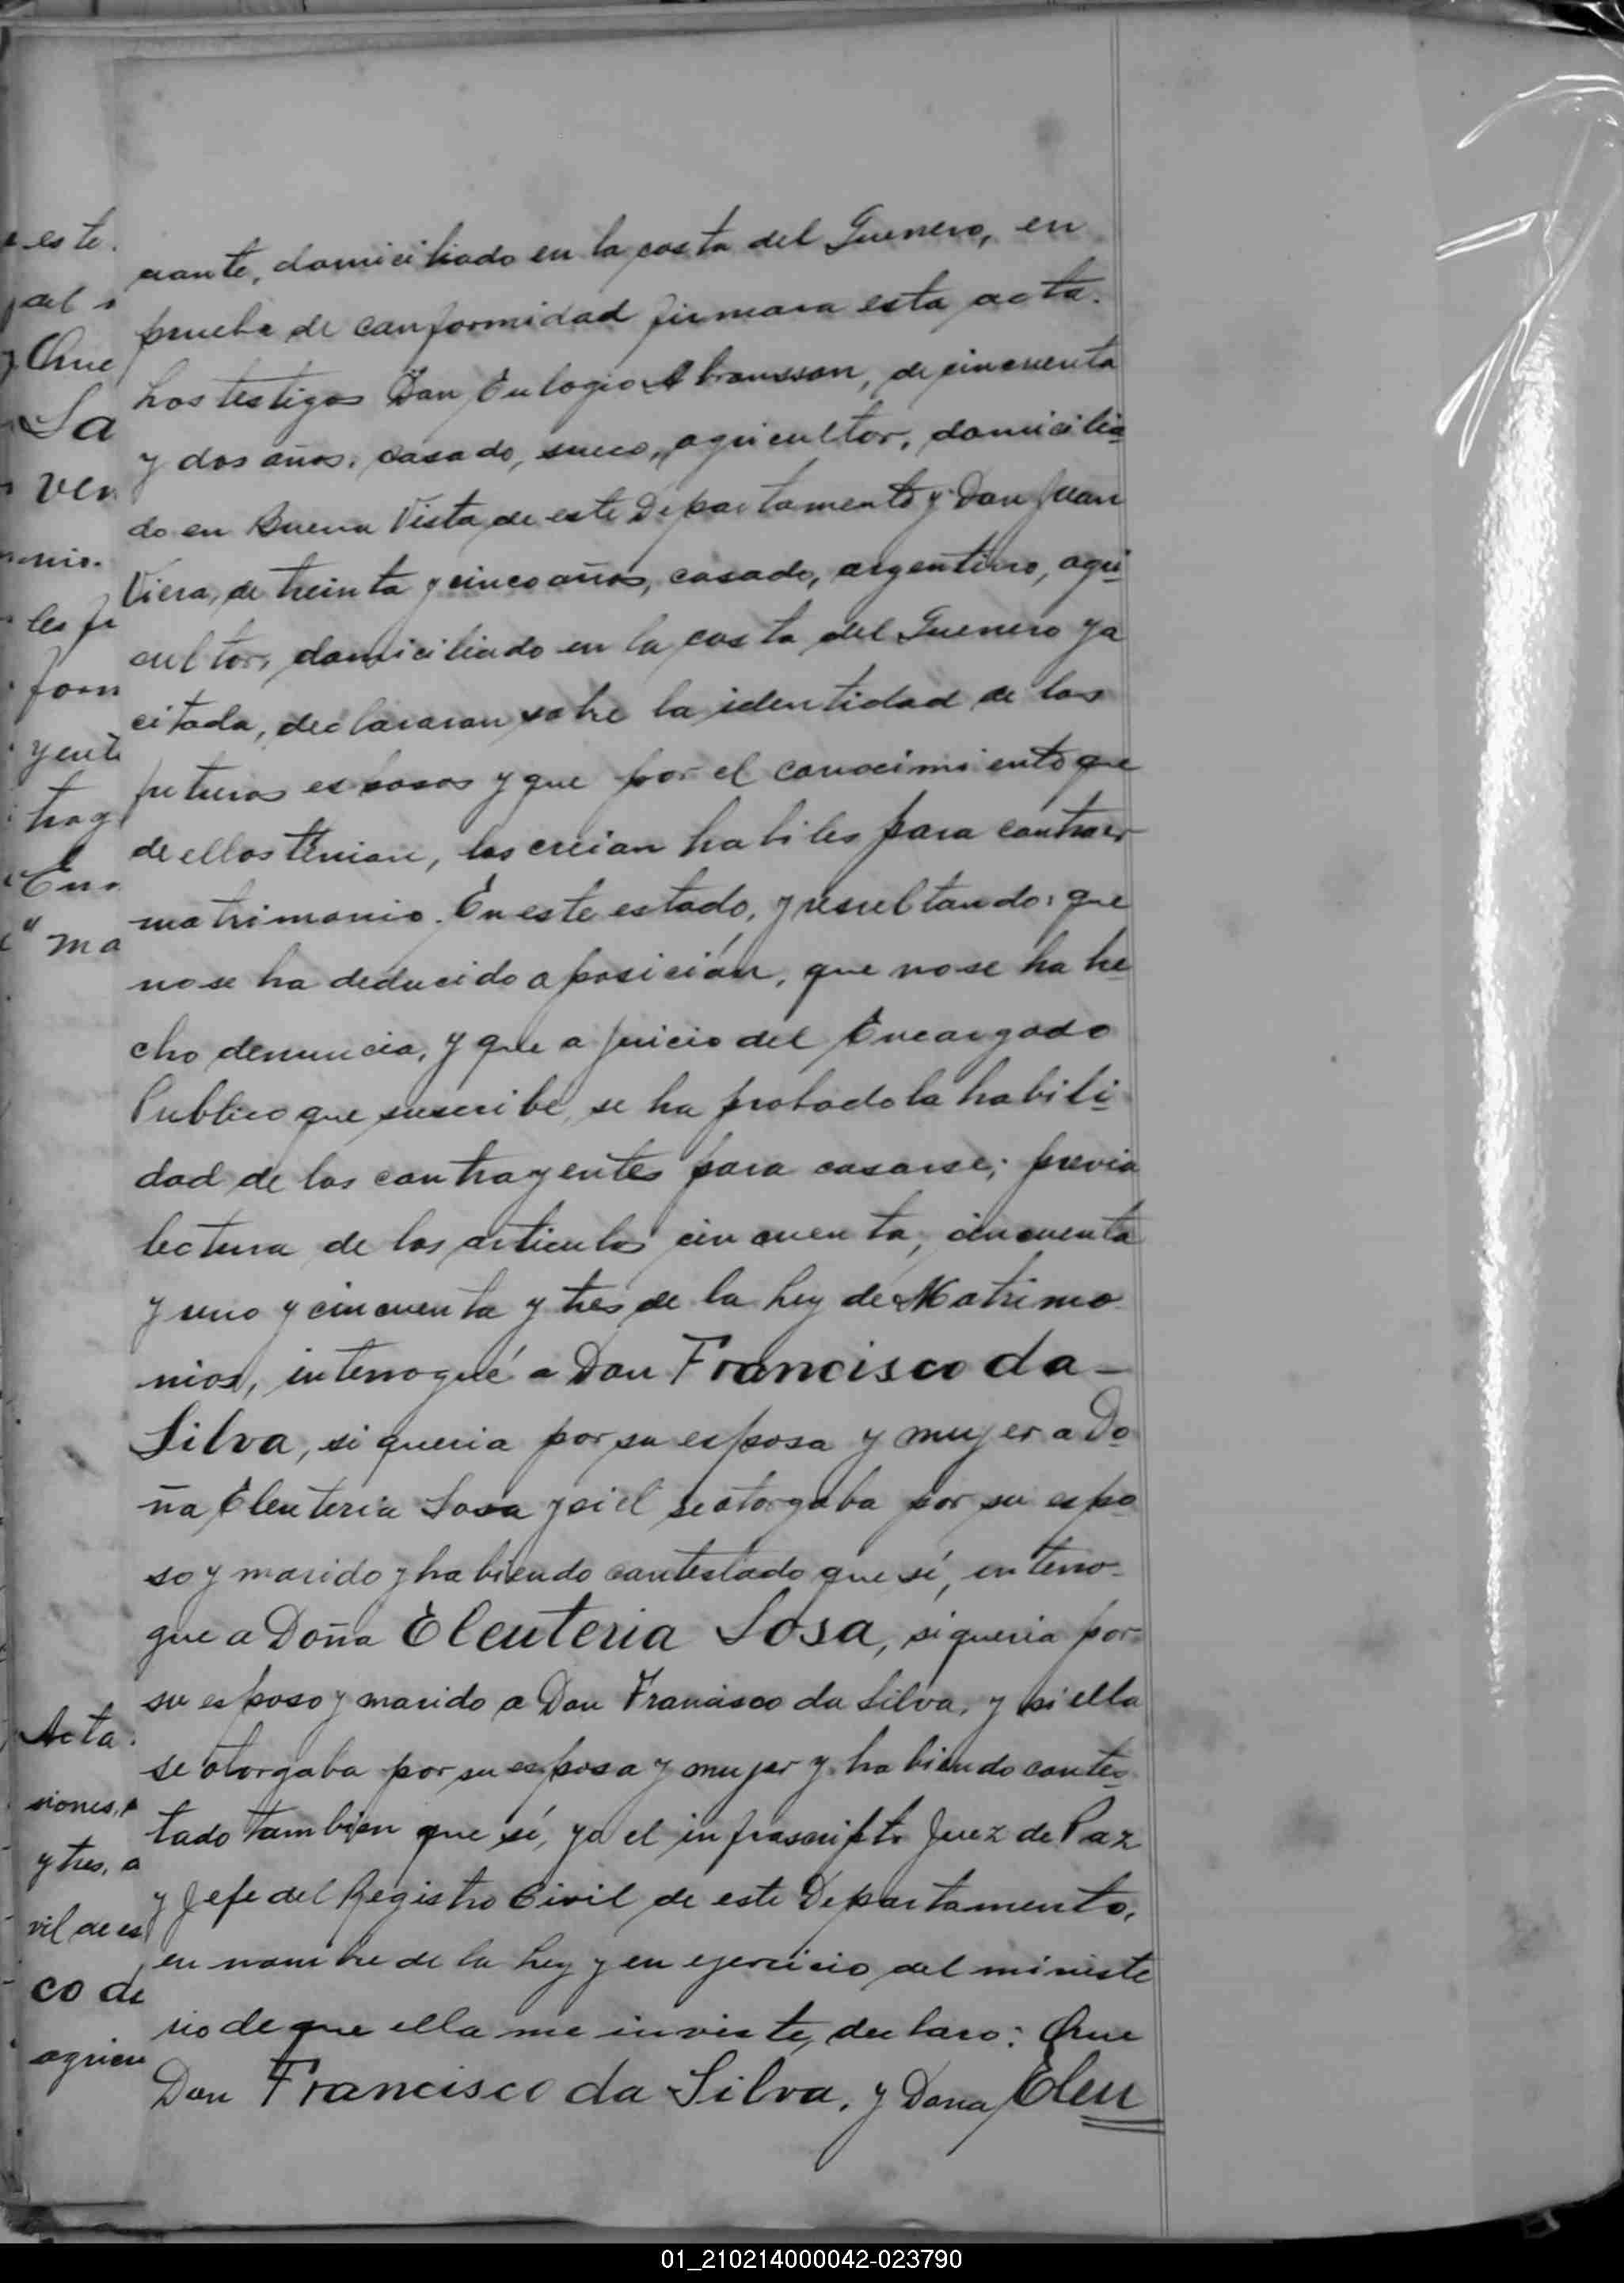 ciante, domiciliado en la costa del Guerrero, en
prueba de conformidad firmara esta acta.
Los testigos Don Eulogio Abramsson, de cincuenta
y dos años, casado, sueco, agricultor, domicilia
do en Buena Vista de este Departamento y Don Juan
Viera, de treinta y cinco años, casado, argentino, agri
cultor, domiciliado en la costa del Guerrero ya
citada, declararon sobre la identidad de los
futuros esposos y que por el conocimiento que
de ellos tenian, los creian habiles para contraer
matrimonio. En este estado, y resultando: que
no se ha deducido oposición, que no se ha he
cho denuncia, y que a juicio del Encargado
Publico que suscribe, se ha probado la habili
dad de los contrayentes para casarse; previa
lectura de los articulos cincuenta, cincuenta
y uno y cincuenta y tres de la Ley de Matrimo
nios, interrogué a Don Francisco da-
Silva, si queria por su esposa y mujer a Do
ña Eleuteria Sosa y si el se otorgaba por su espo
so y marido y habiendo contestado que sí, interro-
gue a Doña Eleuteria Sosa, si queria por
su esposo y marido a Don Francisco da Silva, y si ella
se otorgaba por su esposa y mujer y habiendo contes
tado tambien que sí, yo el infrascripto Juez de Paz
y Jefe del Registro Civil de este Departamento,
en nombre de la Ley y en ejercicio del ministe
rio de que ella me inviste, declaro: Que
Don Francisco da Silva, y Dona Eleu
este.
Que
Sa
ven
les
form
yente
tray
ma
Acta
siones,
y tres, a
vil de es
co da
agricu
01_210214000042-023790